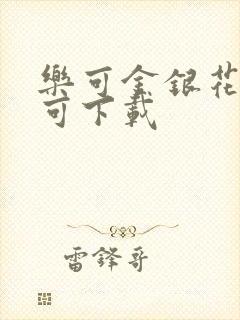 樂可金銀花
可下載
雷鋒哥